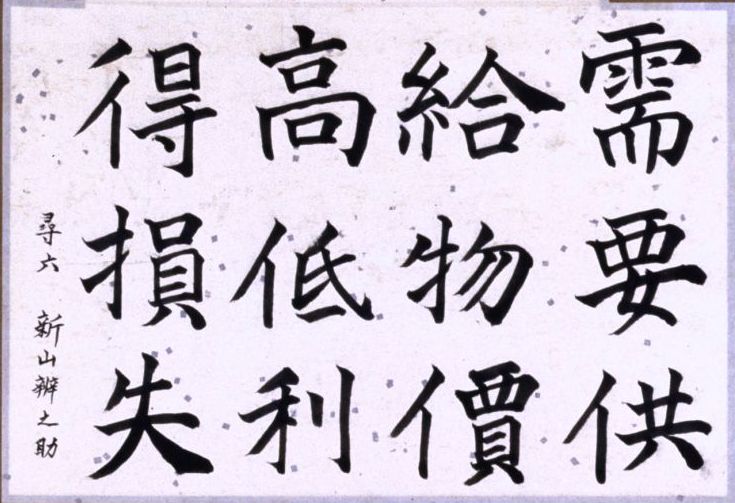 需要供
給物價
高低利
得損失
尋六 新山辨之助